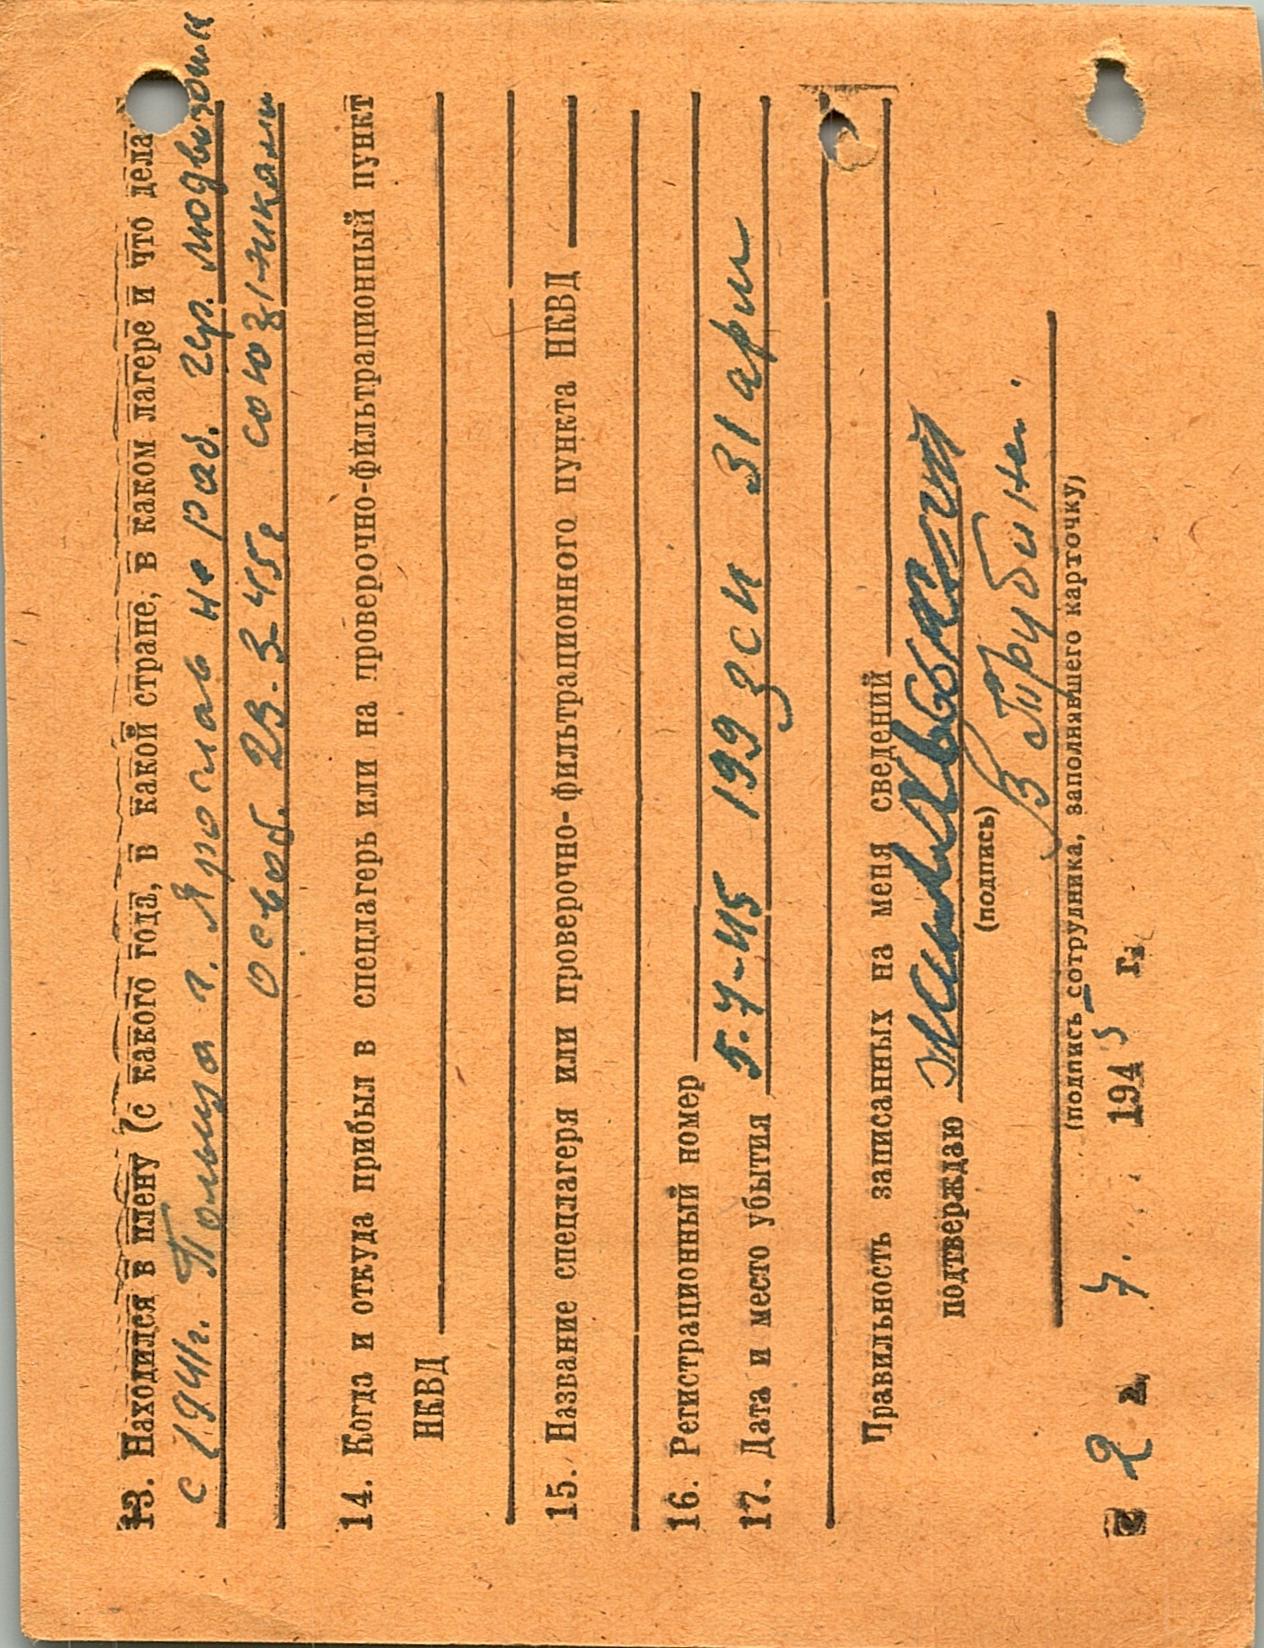 13. Находился в плену (с какого года, в какой стране, в каком лагере и что дела
с 1941г. Польша г. Ярослав не раб. гер.
освоб. 23.3.45г союзниками
14. Когда и откуда прибыл в спецлагерь или на проверочно-фильтрационный пункт
НКВД
15. Название спецлагеря или проверочно-фильтрационного пункта НКВД
16. Регистрационный номер
17. Дата и место убытия 5.7-45 199 зсп 31 арм
Правильность записанных на меня сведений
подтверждаю
(подпись)
(подпись сотрудника, заполнявшего карточку)
2 7. 1945 г.